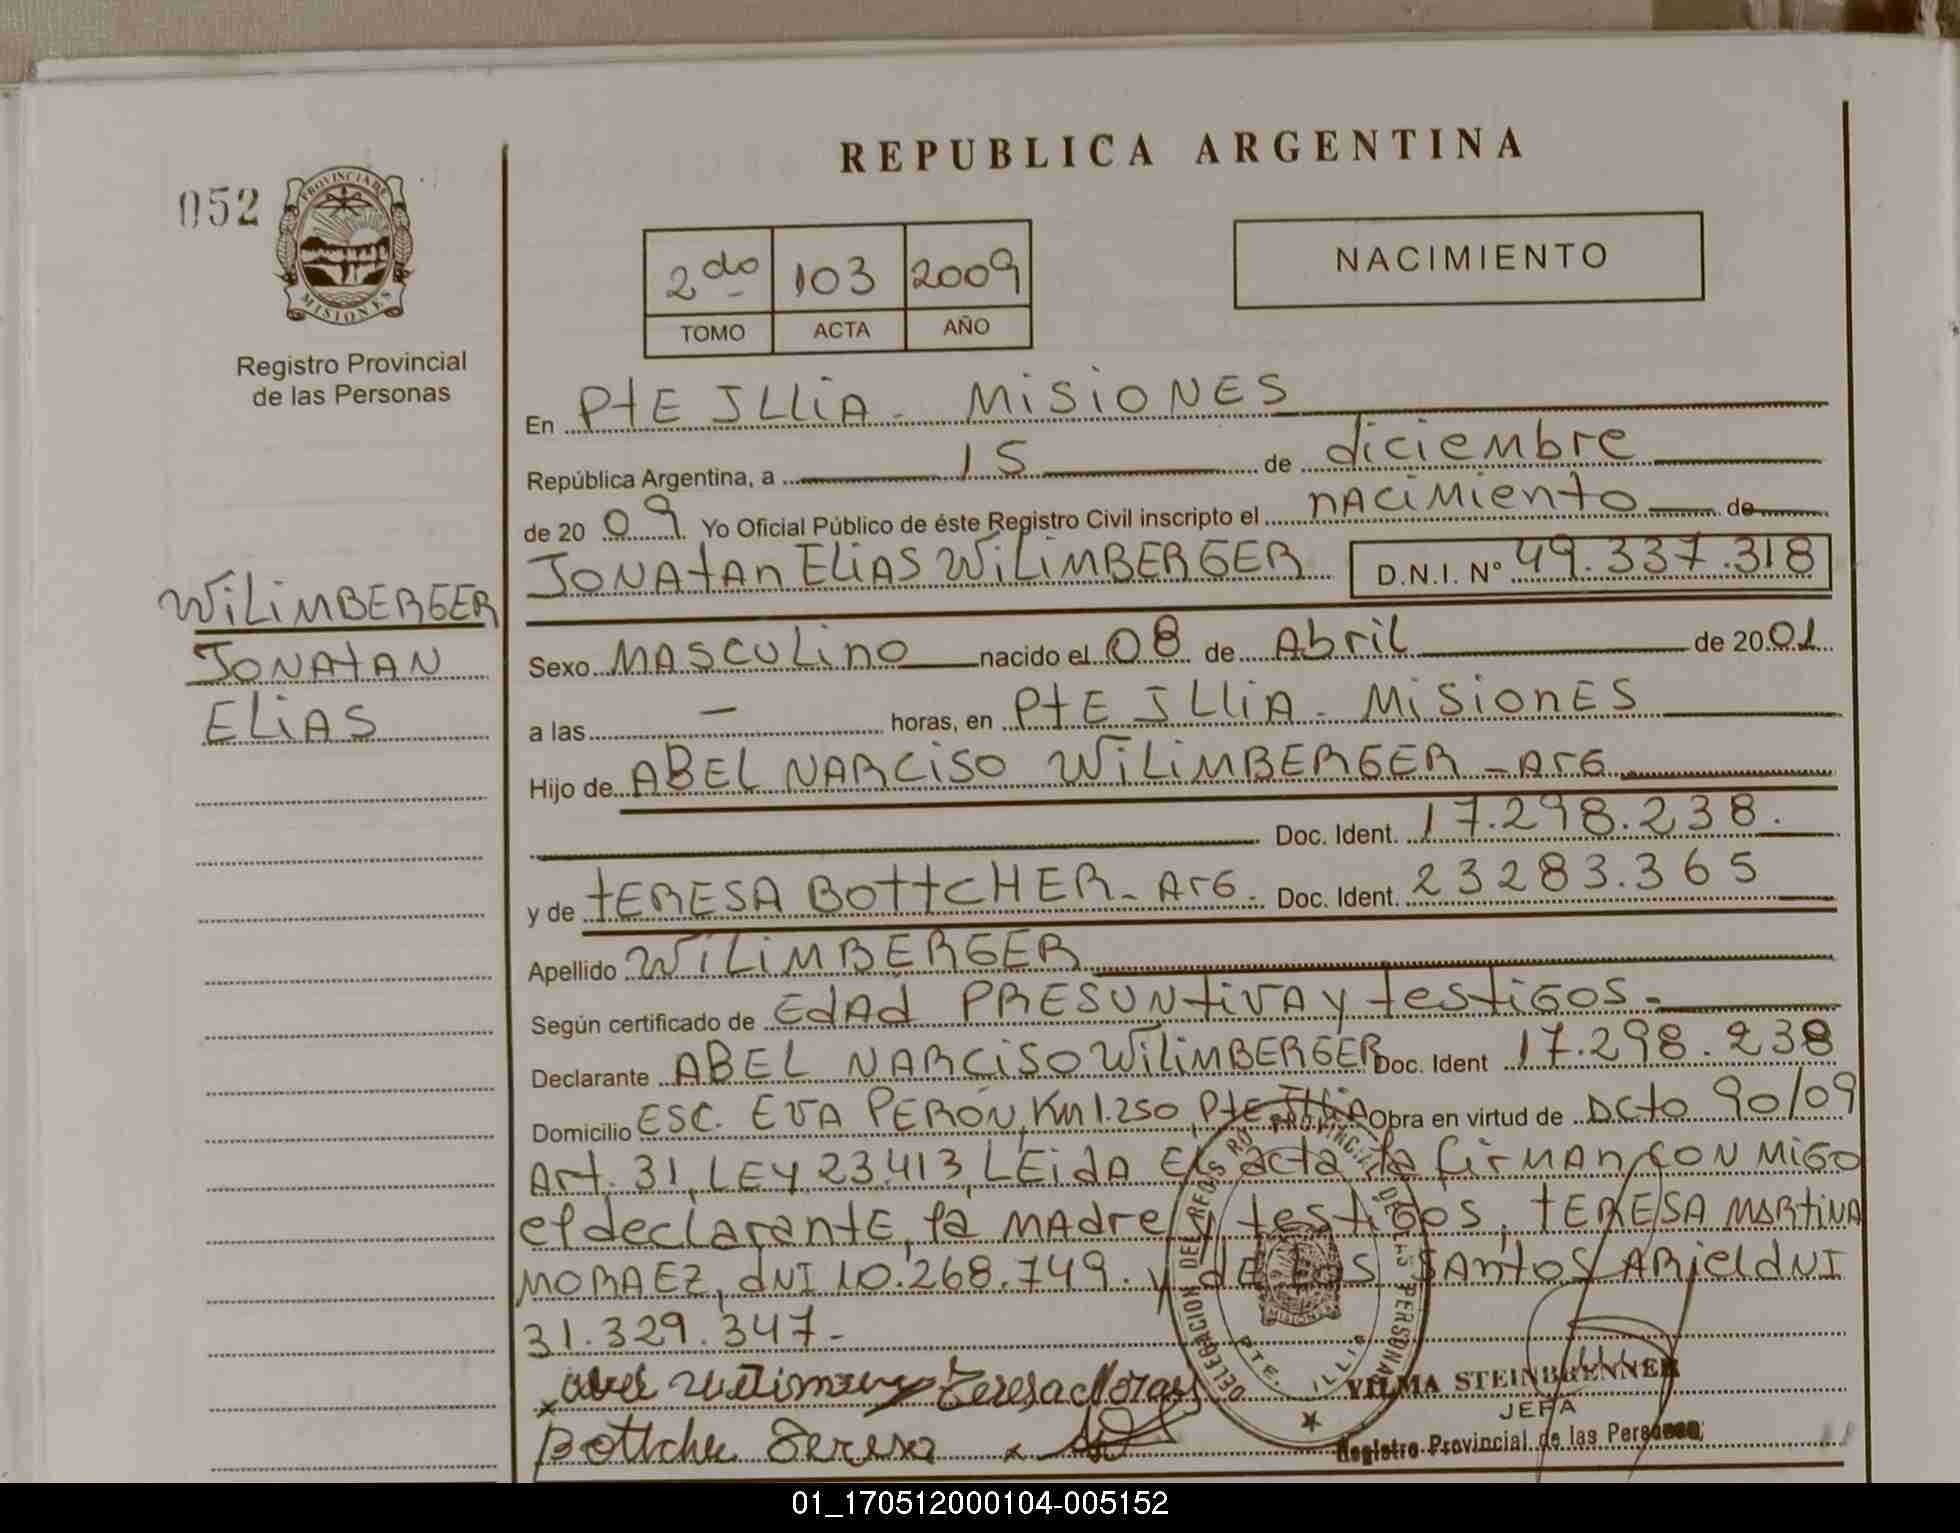 REPUBLICA ARGENTINA
052
PROVINCIA DE
MISIONES
Registro Provincial
de las Personas
2do 103 2009
TOMO ACTA AÑO
NACIMIENTO
En PtE ILLiA - MiSiONES
República Argentina, a 15 de diciembre
de 20 09 Yo Oficial Público de éste Registro Civil inscripto el nACiMiento de
JONAtAn ELiAS WiLiMBERGER D.N.I. N° 49.337.318
WiLiMBERGER
JONAtAN
ELiAS
Sexo MASCULino nacido el 08 de Abril de 20 01
a las - horas, en PtE ILLiA - MiSionES
Hijo de ABEL NARCiSO WiLiMBERGER - ArG
Doc. Ident. 17.298.238.
y de tERESA BOttCHER - ArG. Doc. Ident. 23283.365
Apellido WiLiMBERGER
Según certificado de EdAd PRESUNtiVA y testiGOS.-
Declarante ABEL NARCiSO WiLiMBERGER Doc. Ident 17.298.238
Domicilio ESC. EVA PERÓN, Km 1.250, PtE ILLiA Obra en virtud de Dcto 90/09
Art. 31, LEY 23.413, LEidA EL acta la firMAn CONMiGO
el declarantE, la MAdre y testiGos, tERESA MARtiNA
MORAEZ, dNI 10.268.749. y dE LOS SAntos ARiel dNI
31.329.347-
Teresa Moraez
Bottcher Teresa
DELEGACION DEL REGISTRO PROVINCIAL DE LAS PERSONAS
PTE. ILLIA
MISIONES
VILMA STEINBRENNER
JEFA
Registro Provincial de las Personas
01_170512000104-005152